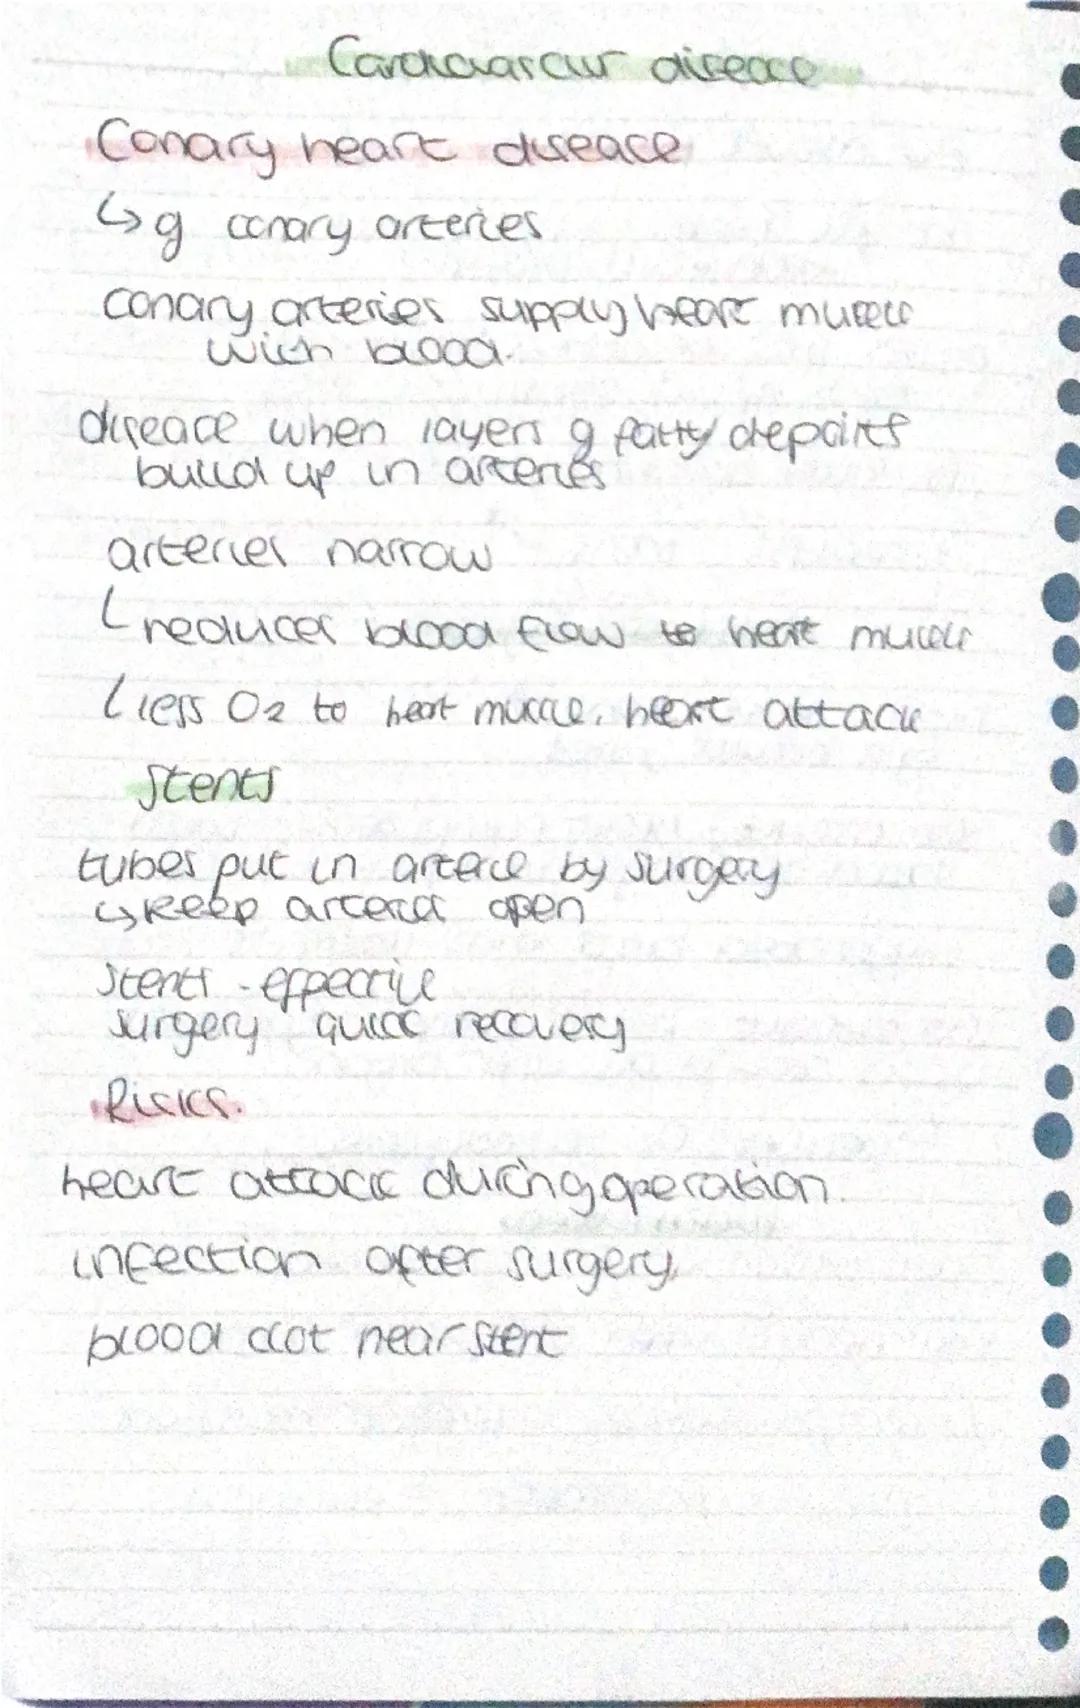 Cardiovascular disease
Coronary heart disease
↳ of coronary arteries
coronary arteries supply heart muscle
with blood.
disease when layers of fatty deposits
build up in arteries
arteries narrow
↳ reduces blood flow to heart muscle
↳ less O2 to heart muscle, heart attack
Stents
tubes put in arterie by surgery
↳ keep arteries open
Stents - effective
surgery quick recovery
Risks.
heart attack during operation.
infection after surgery.
blood clot near stent